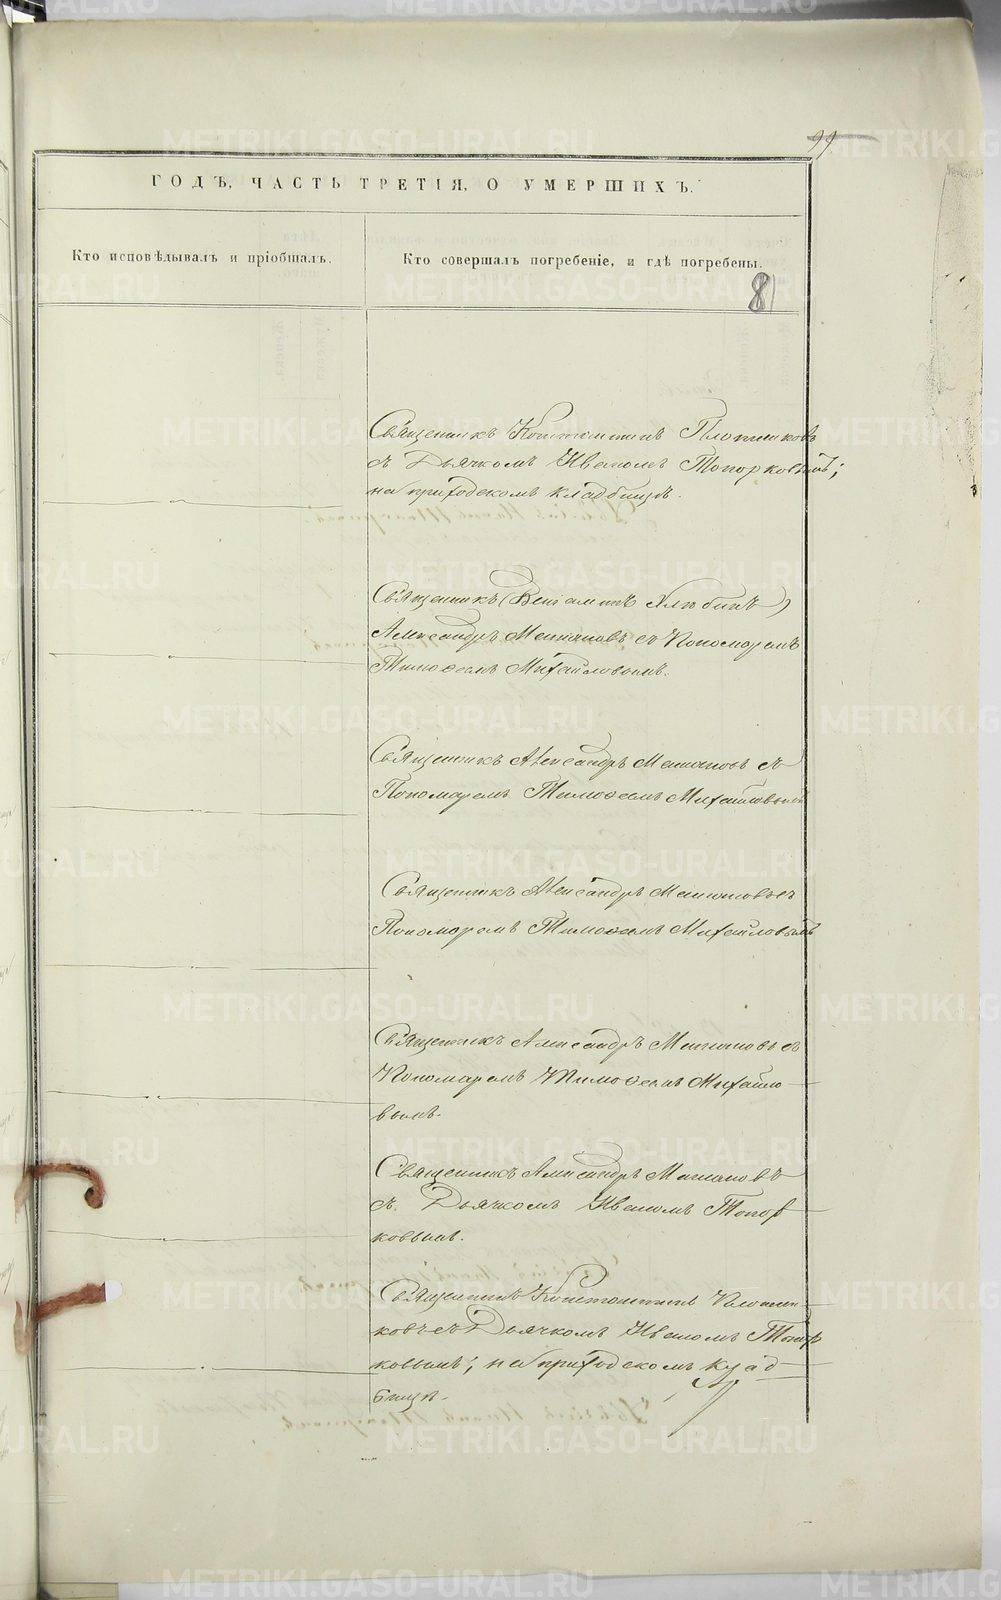 99
ГОДЪ, ЧАСТЬ ТРЕТІЯ, О УМЕРШИХЪ.
Кто исповѣдывалъ и пріобщалъ.
Кто совершалъ погребеніе, и гдѣ погребены.
81
Священникъ Константинъ Плотниковъ
съ Дьячкомъ Иваномъ Топорковымъ;
на приходскомъ кладбищѣ.
Священникъ (Веніаминъ Хлыбинъ)
Александръ Меншановъ съ Пономаремъ
Тимоѳеемъ Михайловымъ.
Священникъ Александръ Меншановъ съ
Пономаремъ Тимоѳеемъ Михайловымъ
Священникъ Александръ Меншановъ съ
Пономаремъ Тимоѳеемъ Михайловымъ
Священникъ Александръ Меншановъ съ
Пономаремъ Тимоѳеемъ Михайло-
вымъ.
Священникъ Александръ Меншановъ
съ Дьячкомъ Иваномъ Топор-
ковымъ.
Священникъ Константинъ Плотни-
ковъ съ Дьячкомъ Иваномъ Топор
ковымъ; на приходскомъ клад-
бищѣ.
METRIKI.GASO-URAL.RU